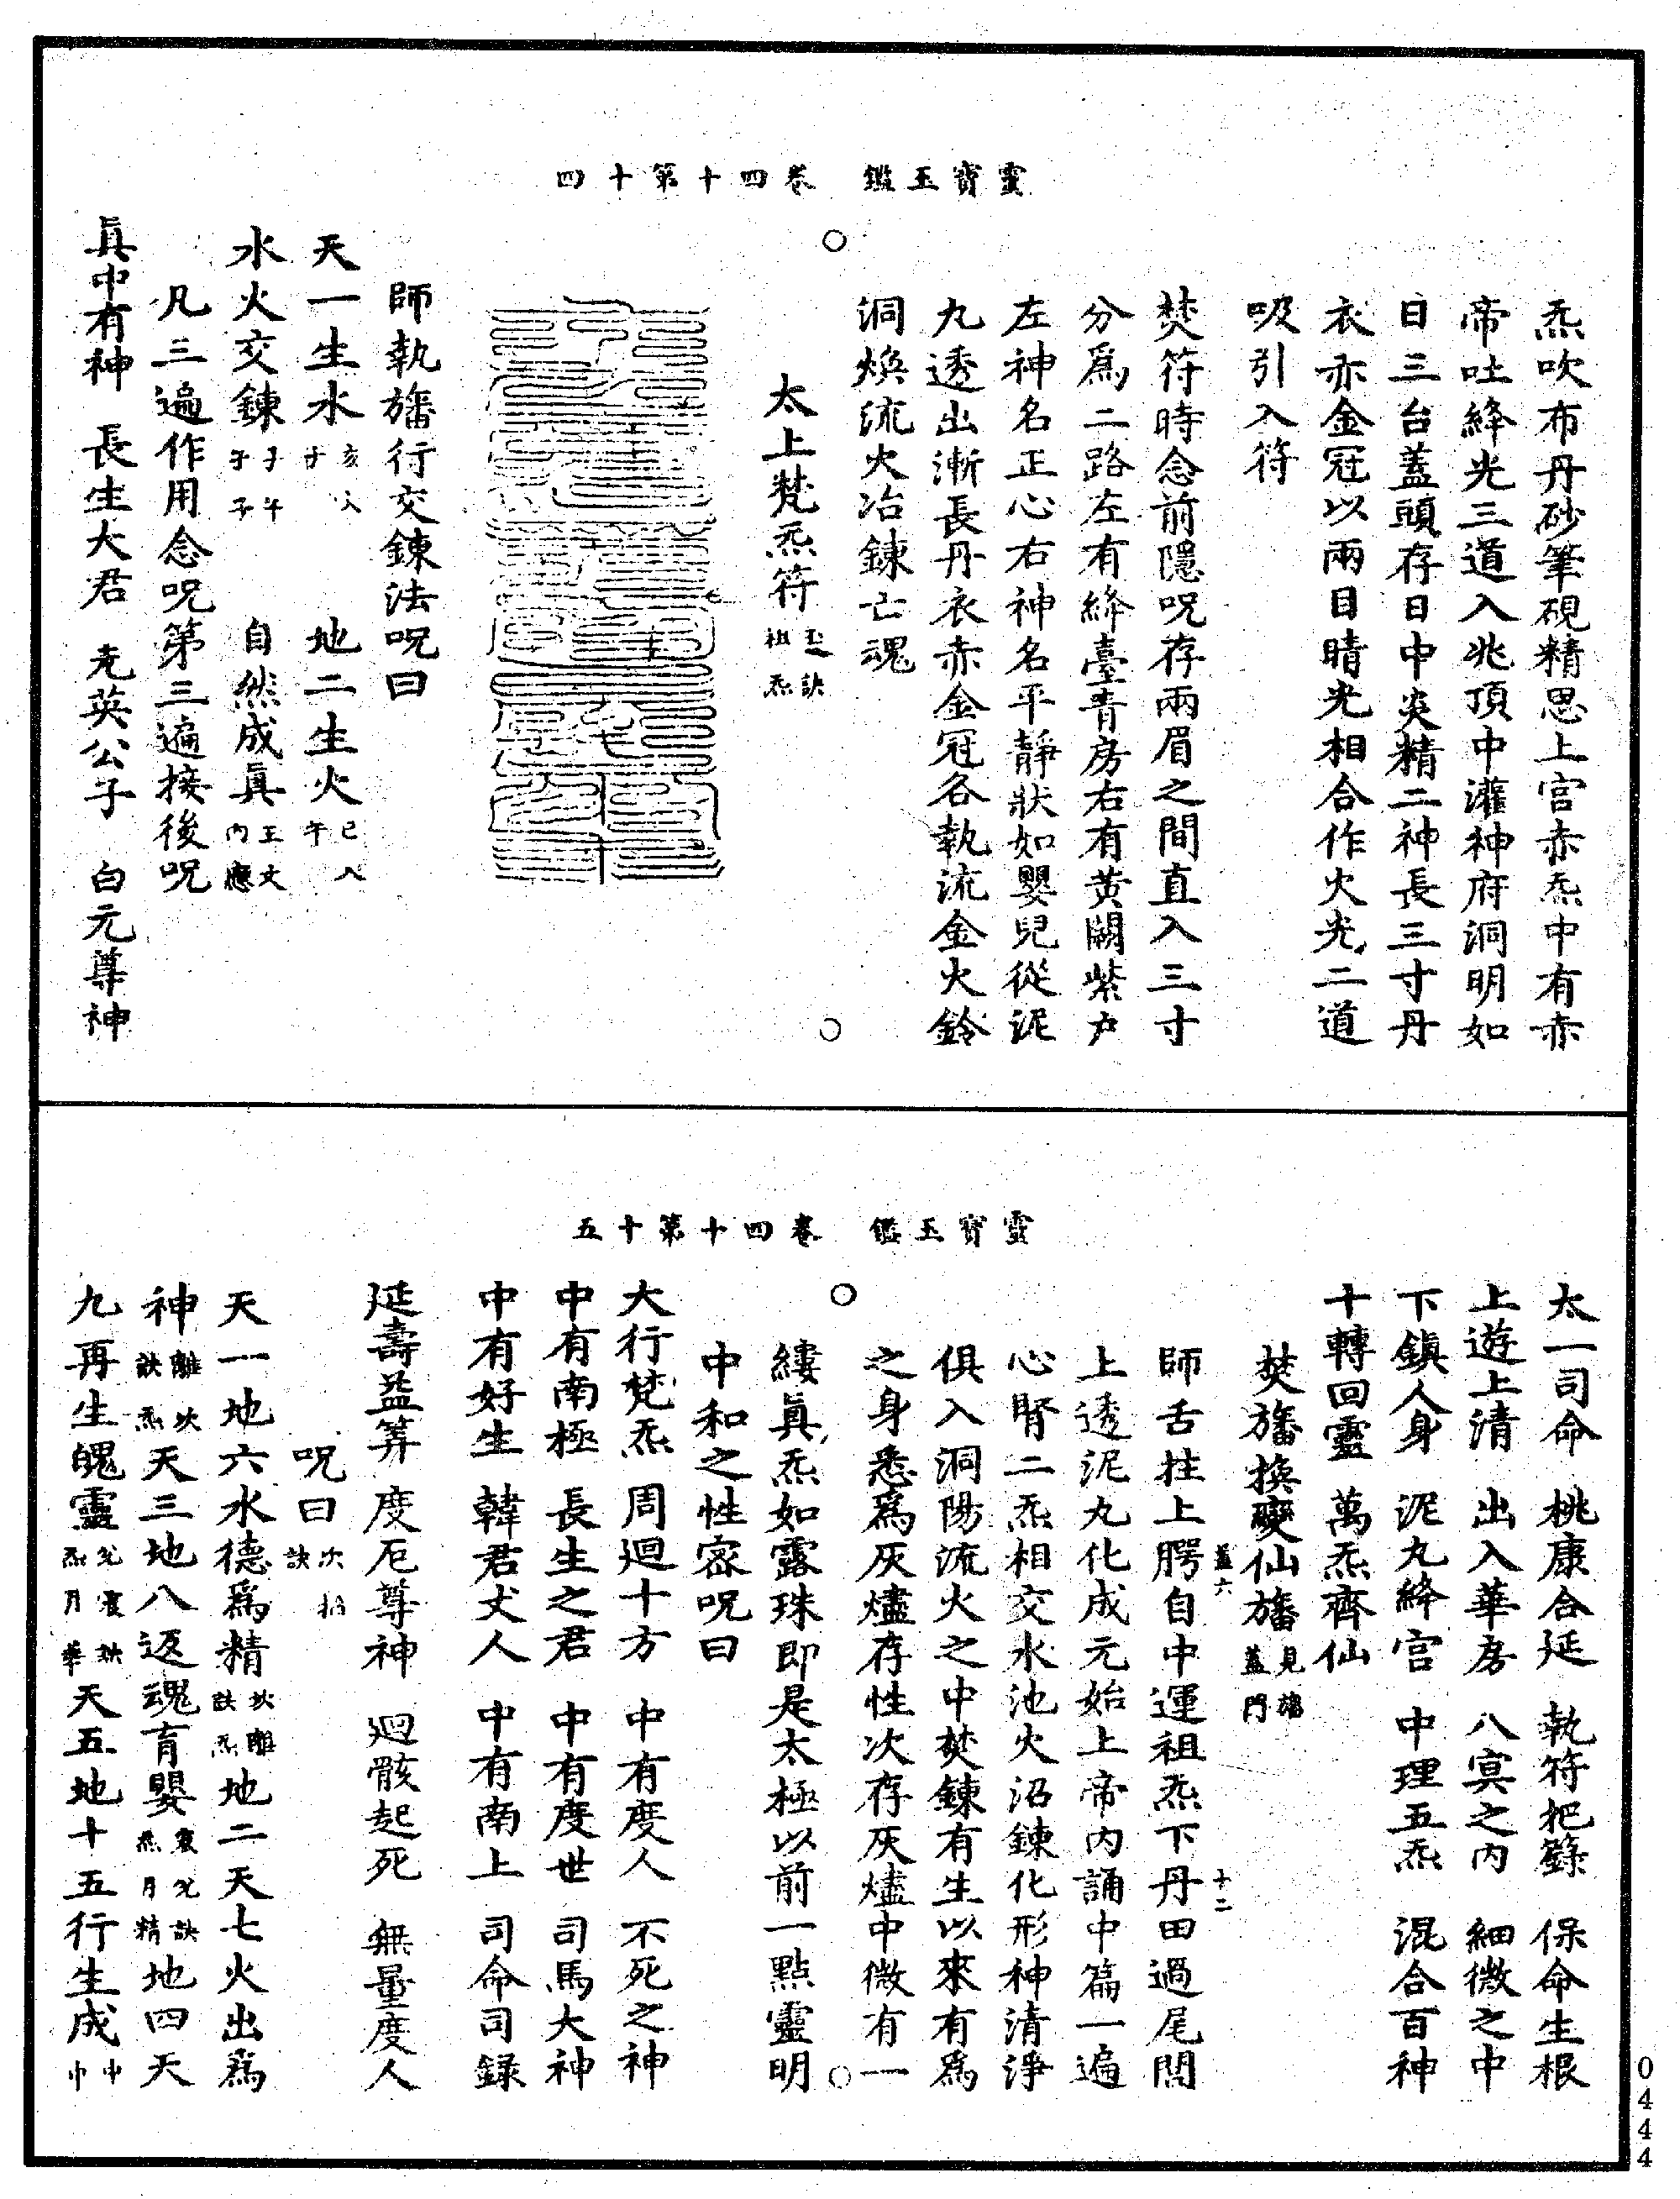 靈寶玉鑑　卷四十第十四
炁吹布丹砂筆硯精思上宫赤炁中有赤
帝吐絳光三道入兆頂中灌神府洞明如
日三台蓋頭存日中炎精二神長三寸丹
衣赤金冠以兩目睛光相合作火光二道
吸引入符
焚符時念前隱呪存兩眉之間直入三寸
分爲二路左有絳臺青房右有黄闕紫户
左神名正心右神名平靜狀如嬰兒從泥
九透出漸長丹衣赤金冠各執流金火鈴
洞煥流火冶鍊亡魂
太上梵炁符 玉訣祖炁
師執旛行交鍊法呪曰
天一生水 亥入子　地二生火 巳入午
水火交鍊 子午午子　自然成眞 王文内應
凡三遍作用念呪第三遍接後呪
眞中有神　長生大君　旡英公子　白元尊神
靈寶玉鑑　卷四十第十五
太一司命　桃康合延　執符把籙　保命生根
上遊上清　出入華房　八㝠之内　細微之中
下鎭人身　泥丸絳宫　中理五炁　混合百神
十轉回靈　萬炁齊仙
焚旛換變仙旛 見旛蓋門
蓋六　十二
師舌拄上腭自中運祖炁下丹田過尾閭
上透泥丸化成元始上帝内誦中篇一遍
心腎二炁相交水池火沼鍊化形神清淨
俱入洞陽流火之中焚鍊有生以來有爲
之身悉爲灰燼存性次存灰燼中微有一
縷眞炁如露珠即是太極以前一點靈明
中和之性密呪曰
大行梵炁　周迴十方　中有度人　不死之神
中有南極　長生之君　中有度世　司馬大神
中有好生　韓君丈人　中有南上　司命司録
延壽益筭　度厄尊神　迴骸起死　無量度人
呪曰 次掐訣
天一地六水德爲精 坎離訣炁 地二天七火出爲
神 離坎訣炁 天三地八返魂育嬰 震兊訣炁月精 地四天
九再生魄靈 兊震訣炁月華 天五地十五行生成 中中
0444